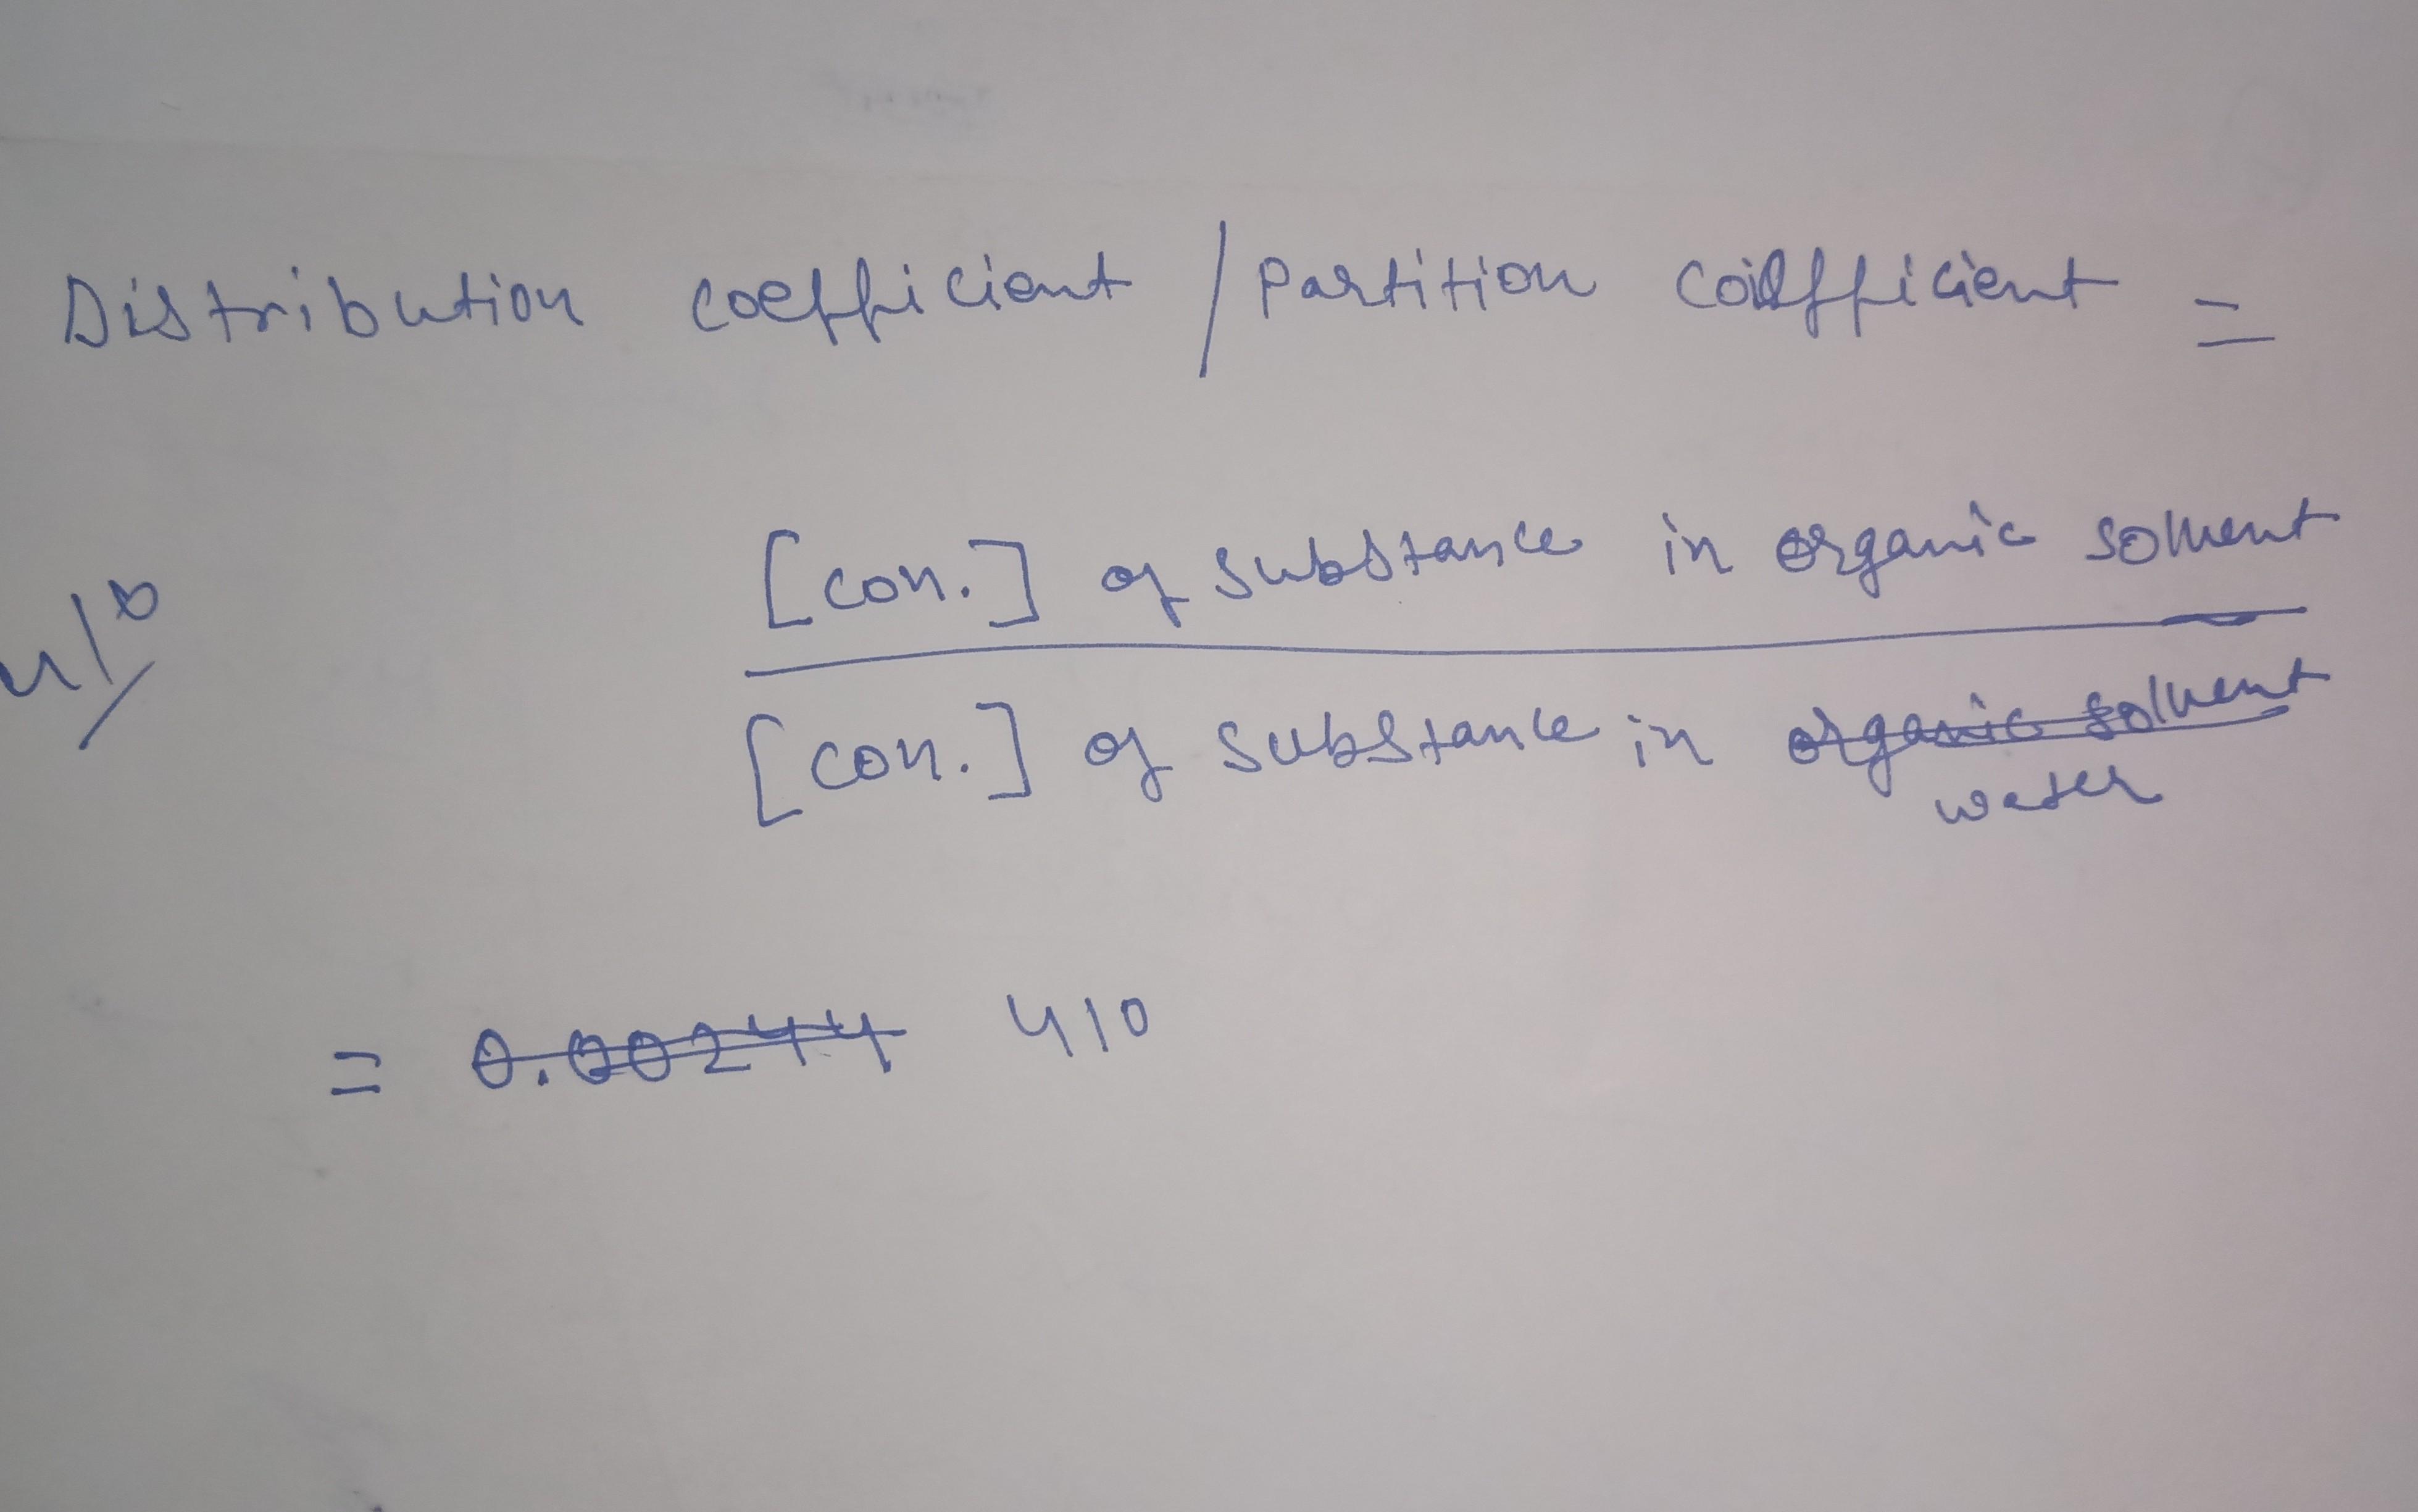 Distribution coefficient / Partition coefficient =
[con.] of substance in organic solvent
[con.] of substance in organic solvent
water
= 0.00244 410